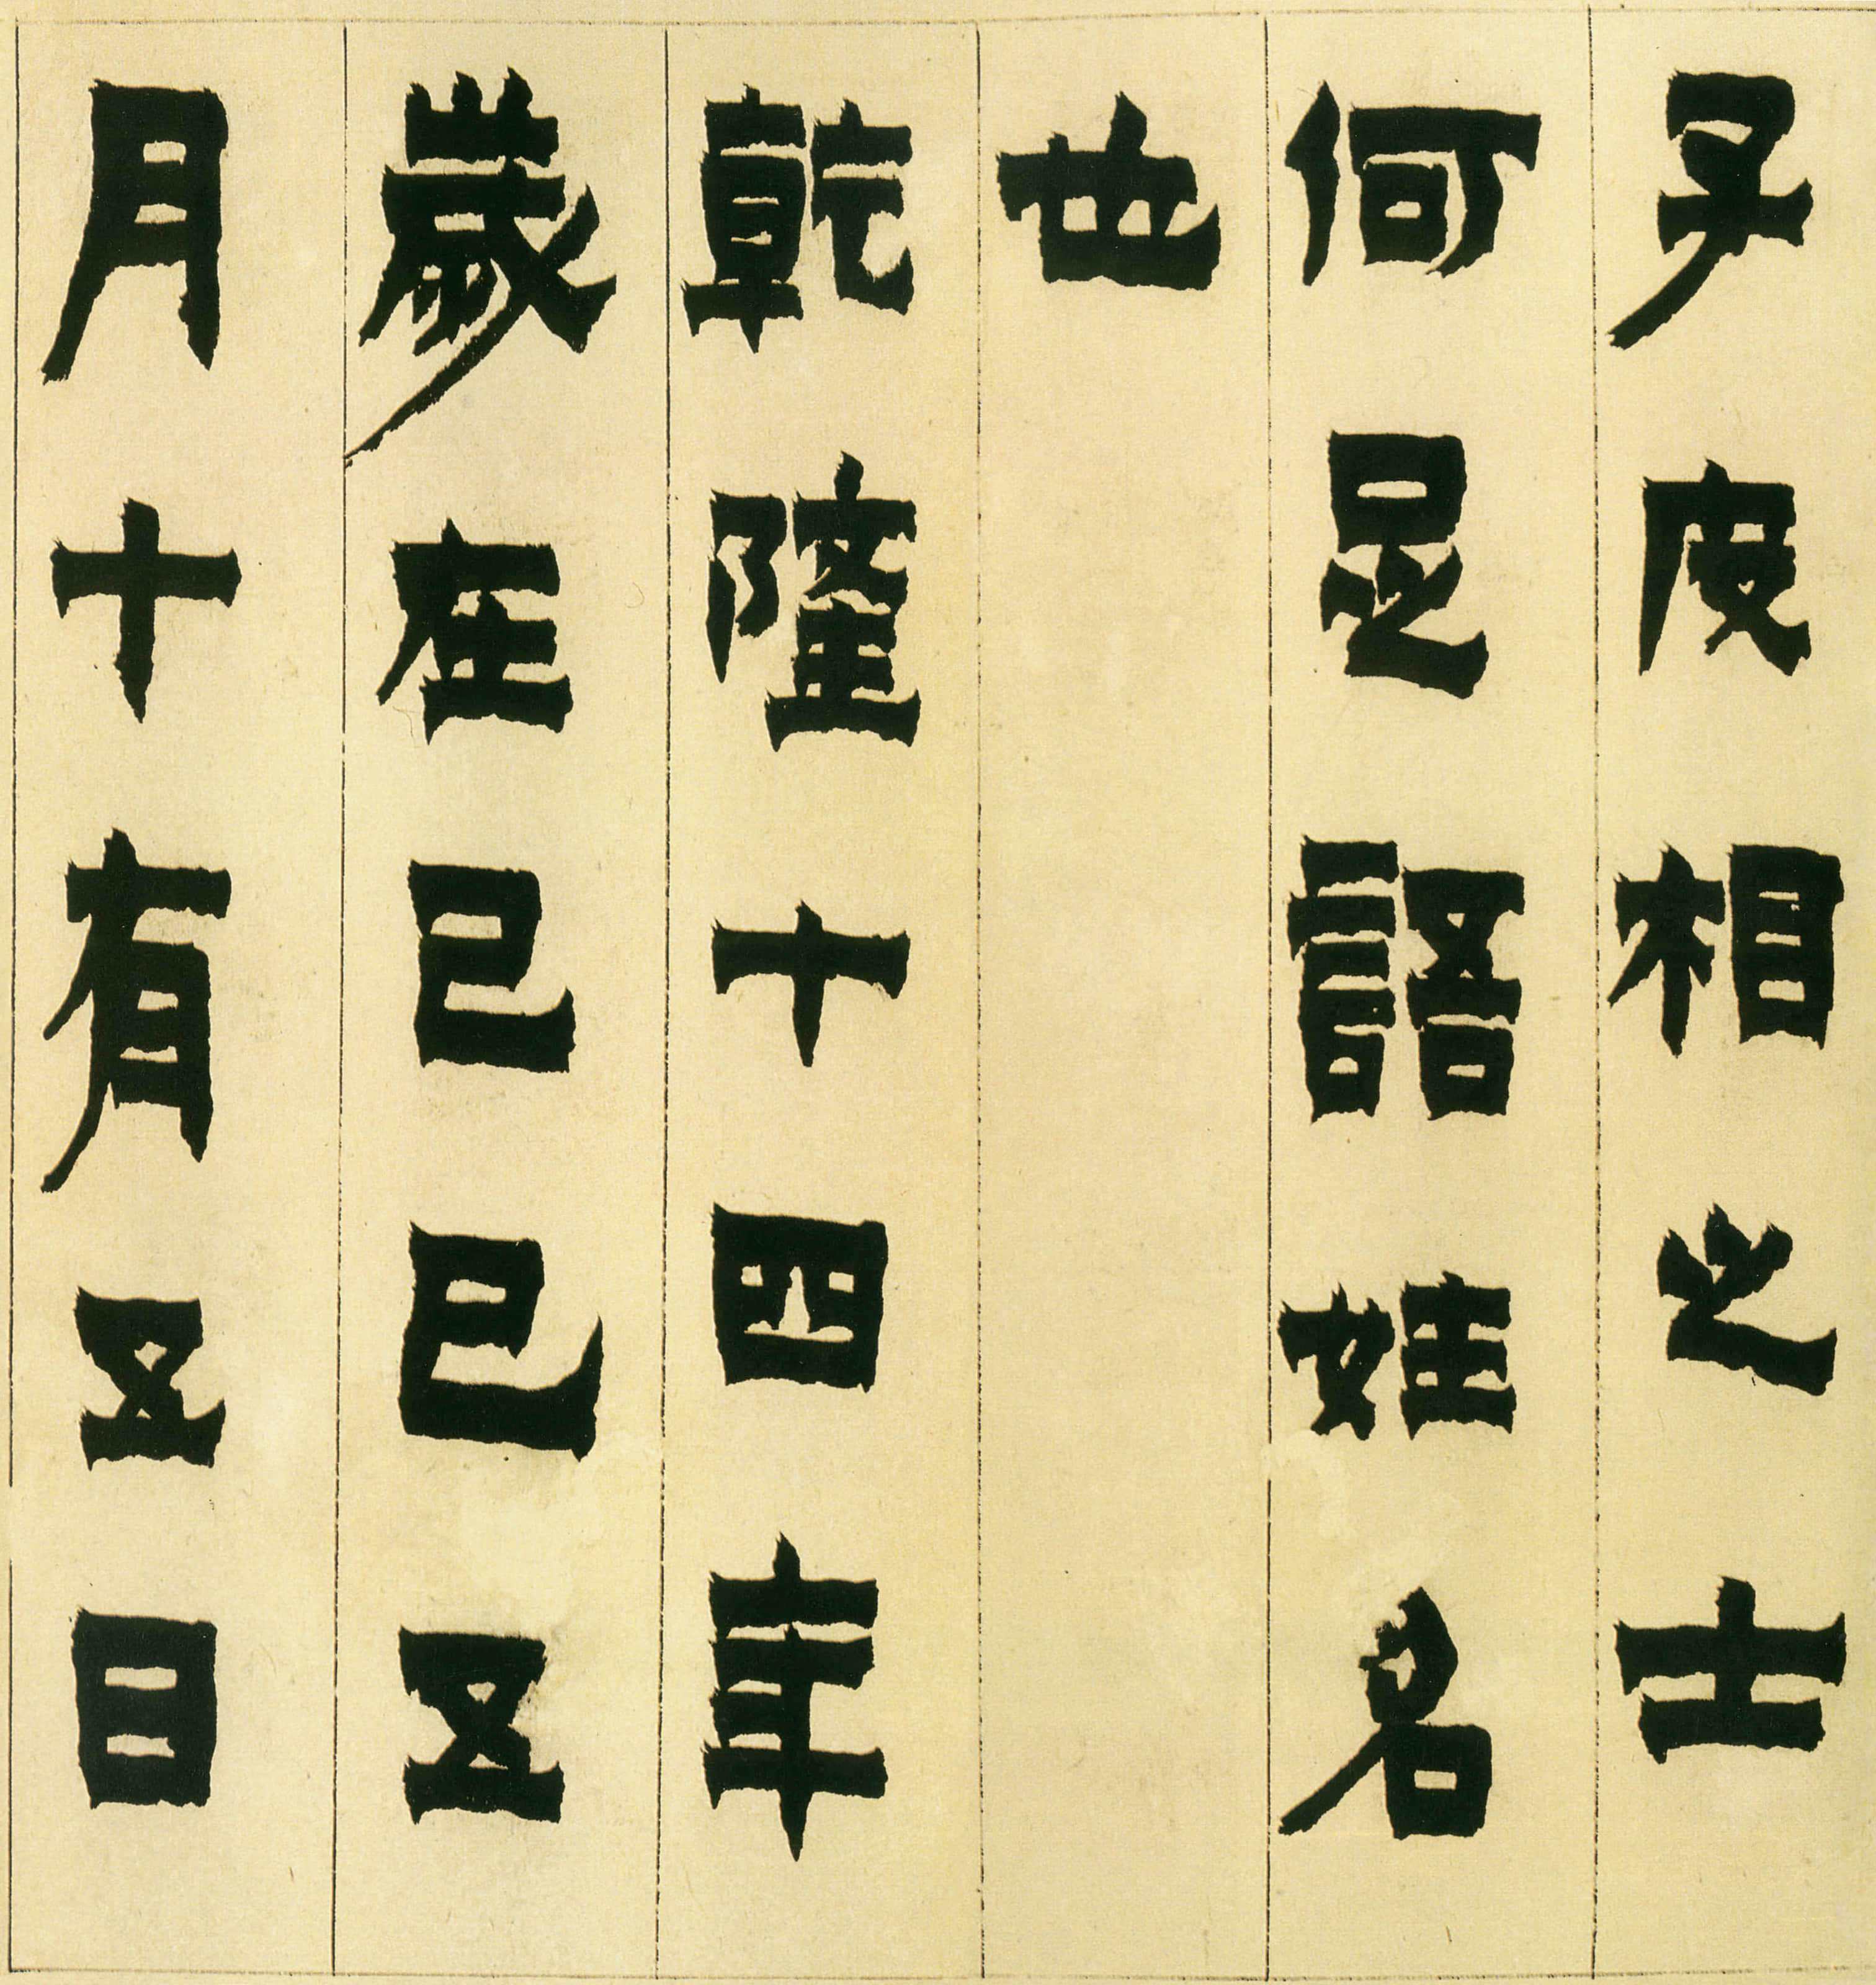 子度相之士
何足語姓名
也
乾隆十四年
歲在己巳五
月十有五日